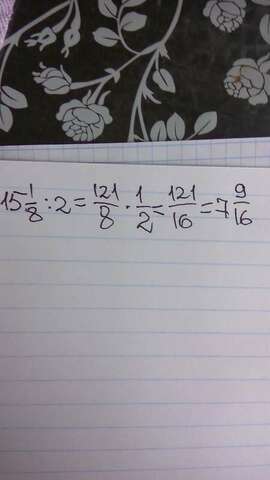 15 1/8 : 2 = 121/8 · 1/2 = 121/16 = 7 9/16